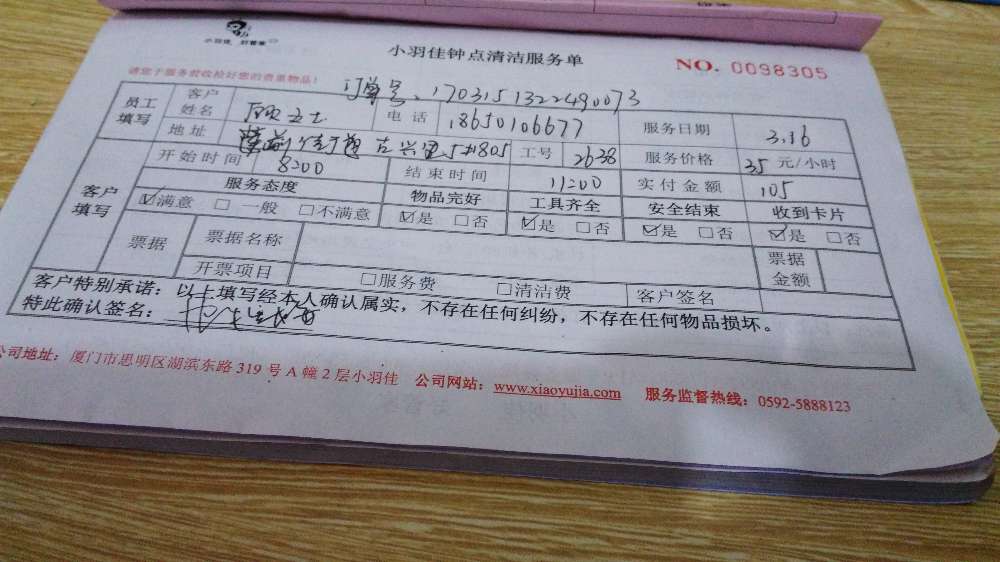 小羽佳 好管家
小羽佳钟点清洁服务单
NO. 0098305
请您于服务前收检好您的贵重物品!
订单号:170315132249 0073
员工填写 客户姓名 顾女士 电话 18650106677 服务日期 3.16
地址 古兴里5#805 工号 2638 服务价格 35 元/小时
客户填写 开始时间 8:00 结束时间 11:00 实付金额 105
服务态度 物品完好 工具齐全 安全结束 收到卡片
☑满意 □一般 □不满意 ☑是 □否 ☑是 □否 ☑是 □否 ☑是 □否
票据 票据名称 票据金额
开票项目 □服务费 □清洁费 客户签名
客户特别承诺:以上填写经本人确认属实,不存在任何纠纷,不存在任何物品损坏。
特此确认签名:
公司地址:厦门市思明区湖滨东路 319 号 A 幢 2 层小羽佳 公司网站:www.xiaoyujia.com 服务监督热线:0592-5888123